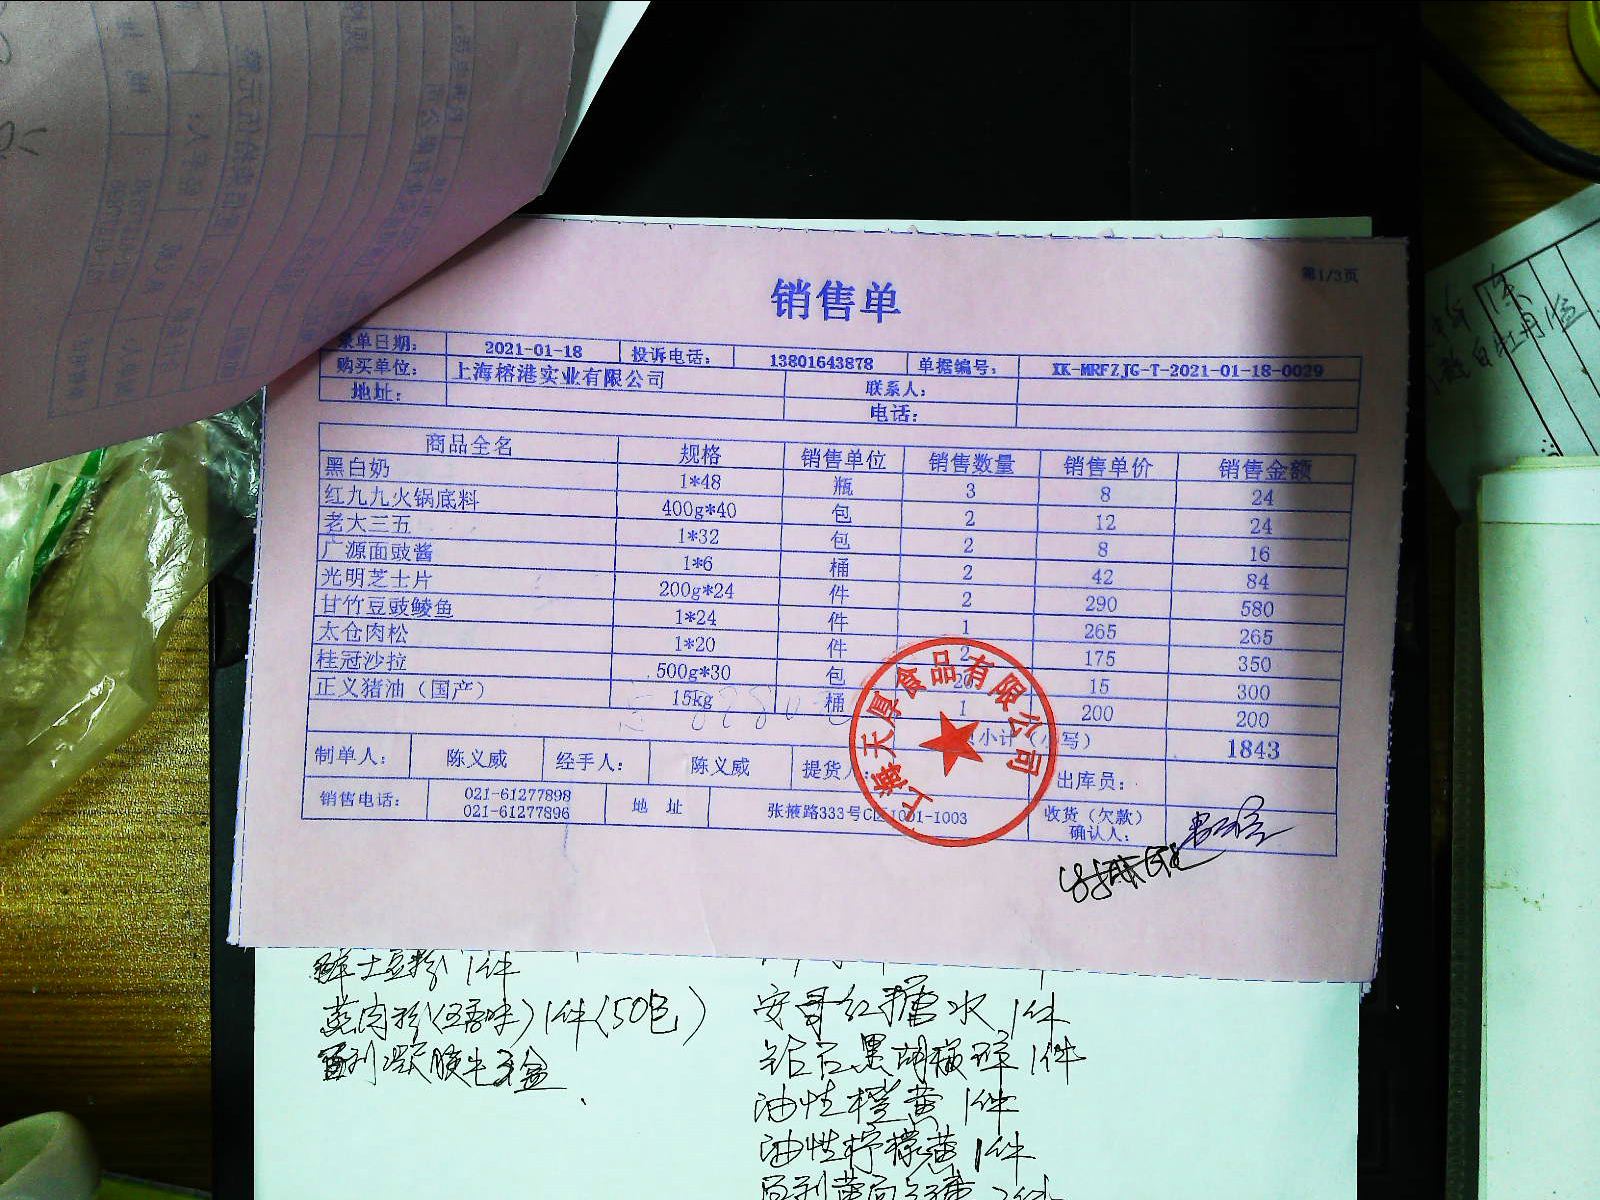 第1/3页
销售单
录单日期： 2021-01-18 投诉电话： 13801643878 单据编号： XK-MRFZJG-T-2021-01-18-0029
购买单位： 上海榕港实业有限公司 联系人：
地址： 电话：
商品全名 规格 销售单位 销售数量 销售单价 销售金额
黑白奶 1*48 瓶 3 8 24
红九九火锅底料 400g*40 包 2 12 24
老大三五 1*32 包 2 8 16
广源面豉酱 1*6 桶 2 42 84
光明芝士片 200g*24 件 2 290 580
甘竹豆豉鲮鱼 1*24 件 1 265 265
太仓肉松 1*20 件 2 175 350
桂冠沙拉 500g*30 包 20 15 300
正义猪油（国产） 15kg 桶 1 200 200
小计（小写） 1843
制单人： 陈义威 经手人： 陈义威 提货人： 出库员：
销售电话： 021-61277898 021-61277896 地 址 张掖路333号C区1001-1003 收货（欠款）确认人：
上海天厚食品有限公司
土豆粉 1件
蒸肉粉（五香味）1件（50包）
安哥红糖水 1件
钻石黑胡椒碎 1件
油性橙黄 1件
油性柠檬黄 1件